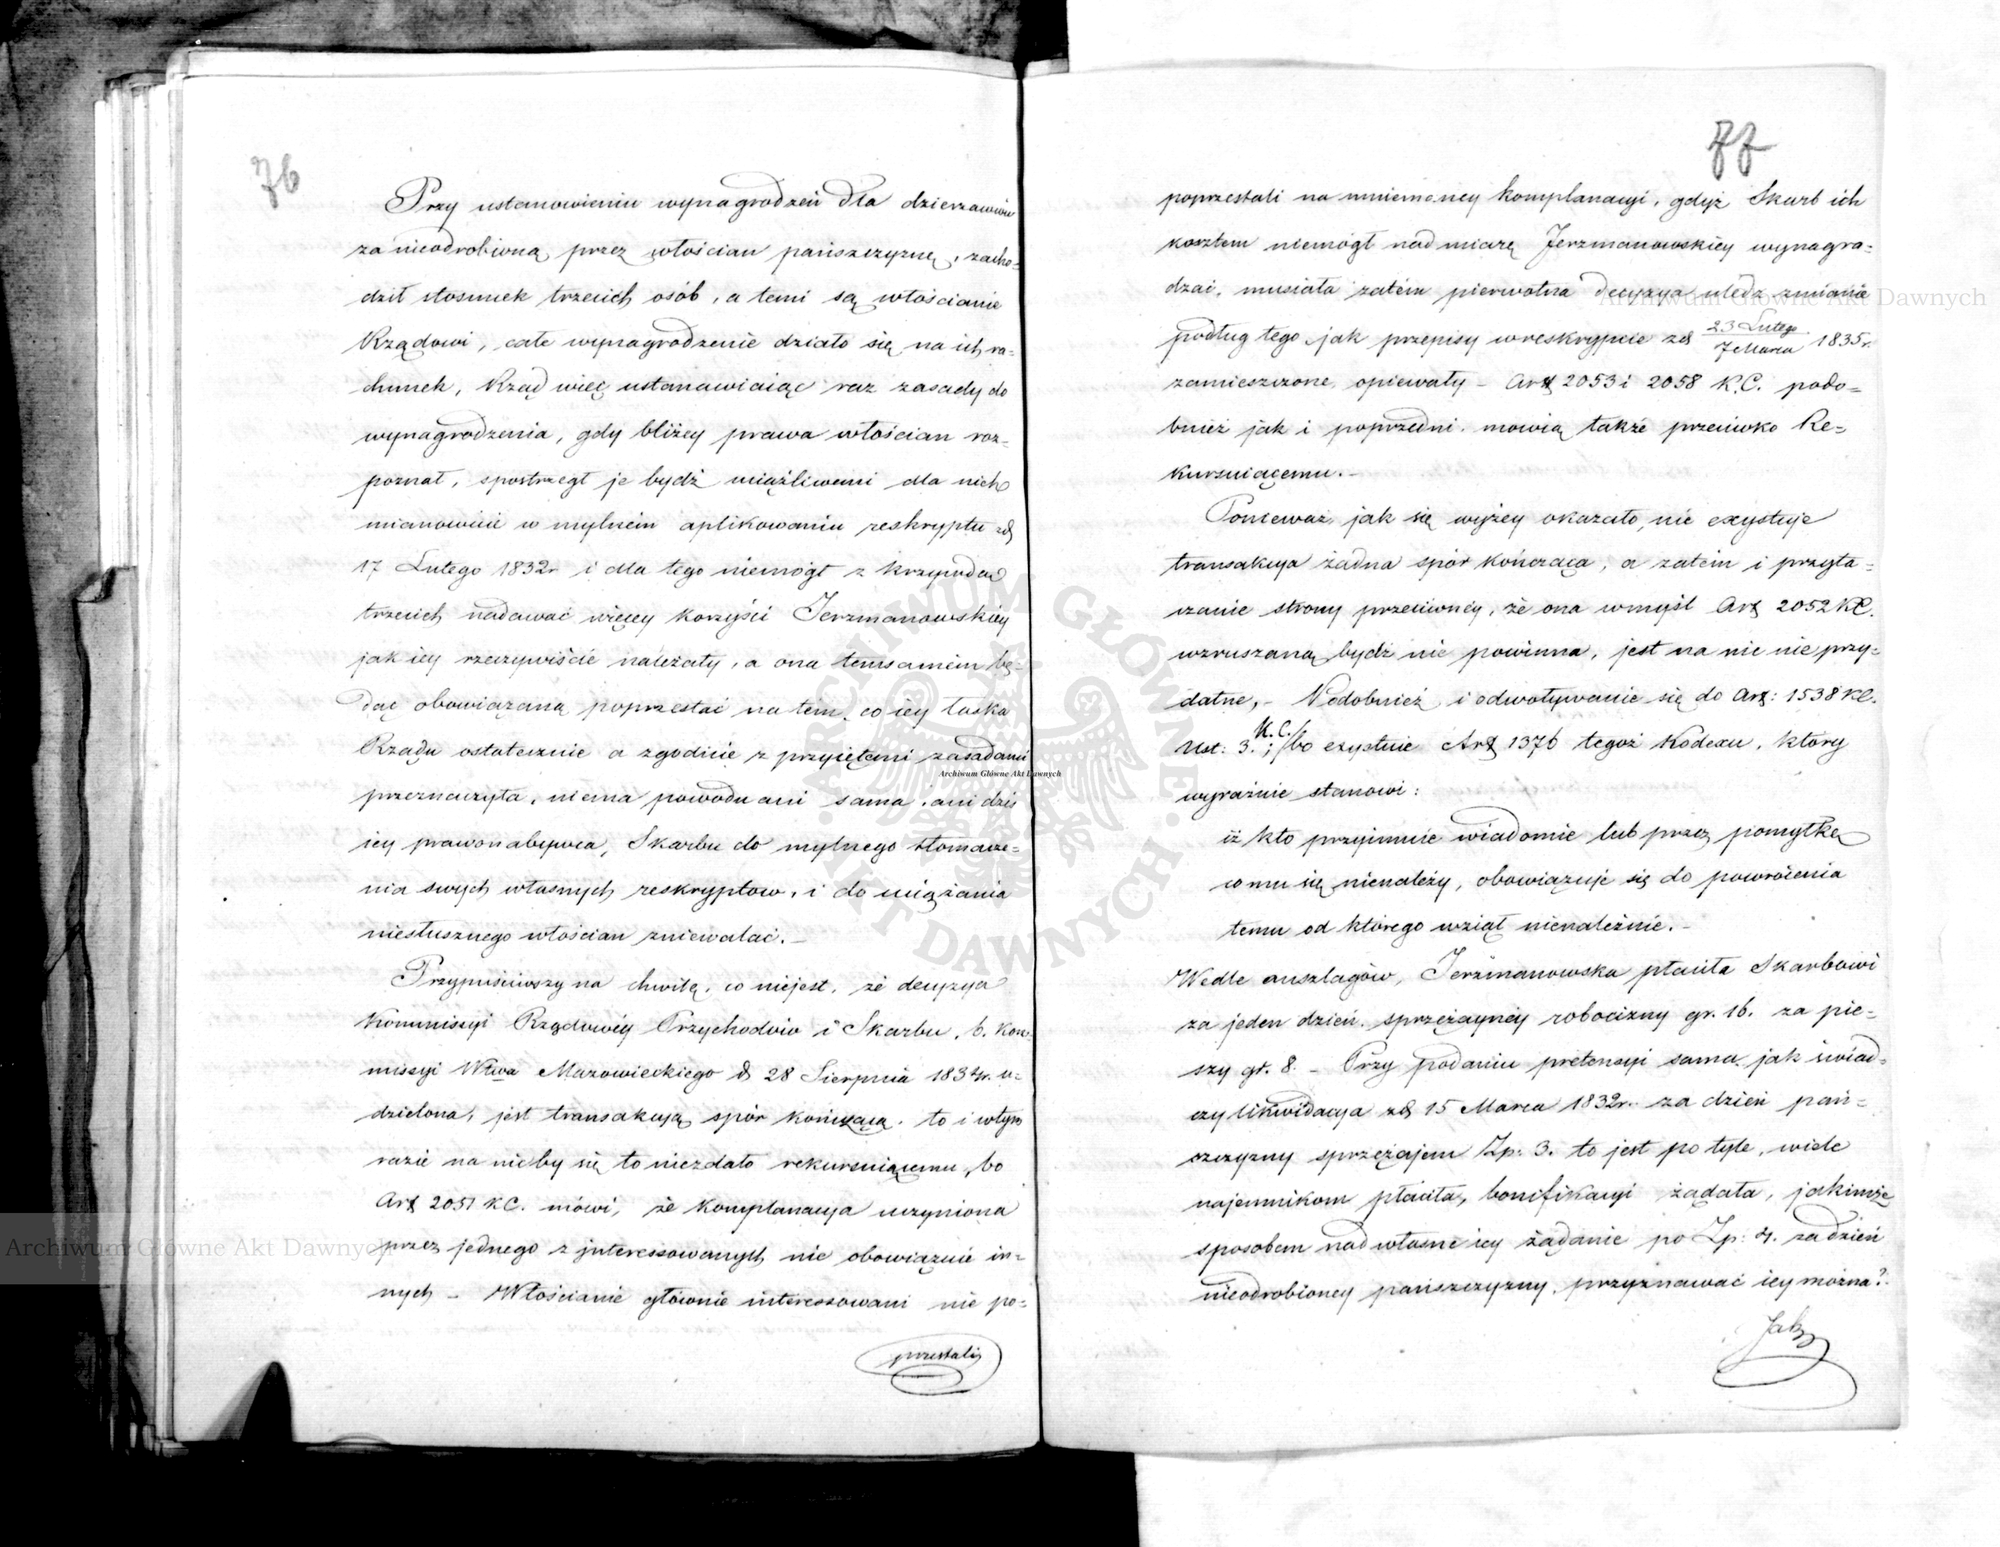 76
Przy ustanowieniu wynagrodzeń dla dzierzawców
za nieodrobioną przez włościan pańszczyznę, zacho-
dził stosunek trzecich osób, a temi są włościanie
Rządowi, całe wynagrodzenie działo się na ich ra-
chunek, Rząd więc ustanawiaiąc raz zasady do
wynagrodzenia, gdy bliżey prawa włościan roz-
poznał, spostrzegł je bydź uciążliwemi dla nich
mianowicie w mylnem aplikowaniu reskryptu zd
17 Lutego 1832r i dla tego niemógł z krzywdą
trzecich nadawać więcey korzyści Jerzmanowskiey
jak iey rzeczywiście należały, a ona temsamem bę-
dąc obowiązaną poprzestać na tem, co iey łaska
Rządu ostatecznie a zgodnie z przyiętemi zasadami
przeznaczyła, niema powodu ani sama, ani dziś
iey prawonabywca, Skarbu do mylnego tłomacze-
nia swych własnych reskryptow, i do uciążania
niesłusznego włościan zniewalać. –
Przypuściwszy na chwilę, co niejest, że decyzya
Kommissyi Rządowéy Przychodów i Skarbu, b. Kom-
missyi Wtwa Mazowieckiego d 28 Sierpnia 1834r. u-
dzielona, jest transakcyą spór kończącą, to i wtym
razie na nicby się to niezdało rekursuiącemu, bo
Art 2051 KC. mówi, że komplanacya uczyniona
przez jednego z interessowanych nie obowiązuie in-
nych – Włościanie głównie interessowani nie po-
przestali
77
poprzestali na mniemaney komplanacyi, gdyż Skarb ich
kosztem niemógł nad miarę Jerzmanowskiey wynagra-
dzać, musiała zatem pierwotna decyzya uledz zmianie
podług tego jak przepisy w reskrypcie zd 23 Lutego/7 Marca 1835r.
zamieszczone opiewały – Art 2053 i 2058 K.C. podo-
bnież jak i poprzedni mowią także przeciwko Re-
kursuiącemu. –
Ponieważ jak się wyżey okazało, nie exystuje
transakcya żadna spór kończąca, a zatem i przyta-
czanie strony przeciwnéy, że ona wmyśl Art 2052 KC.
wzruszaną bydź nie powinna, jest na nic nie przy-
datne, – Podobnież i odwoływanie się do Art: 1538 KC.
Ust: 3. K.C.; bo exystuie Art 1376 tegoż Kodexu, ktory
wyraźnie stanowi:
iż kto przyimuie wiadomie lub przez pomyłkę
co mu się nienależy, obowiązuje się do powrócenia
temu od którego wziął nienależnie. –
Wedle anszlagów, Jerzmanowska płaciła Skarbowi
za jeden dzień sprzężayney robocizny gr. 16. za pie-
szy gr. 8. – Przy podaniu pretensyi sama jak świad-
czy likwidacya zd 15 Marca 1832r. za dzień pań-
szczyzny sprzężajem Zp: 3. to jest po tyle, wiele
najemnikom płaciła, bonifikacyi żądała, jakimże
sposobem nad własne iey żądanie po Zp: 4. za dzień
nieodrobioney pańszczyzny przyznawać iey można?
Jak
Archiwum Główne Akt Dawnych
Archiwum Główne Akt Dawnych
Archiwum Główne Akt Dawnych
ARCHIWUM GŁÓWNE AKT DAWNYCH